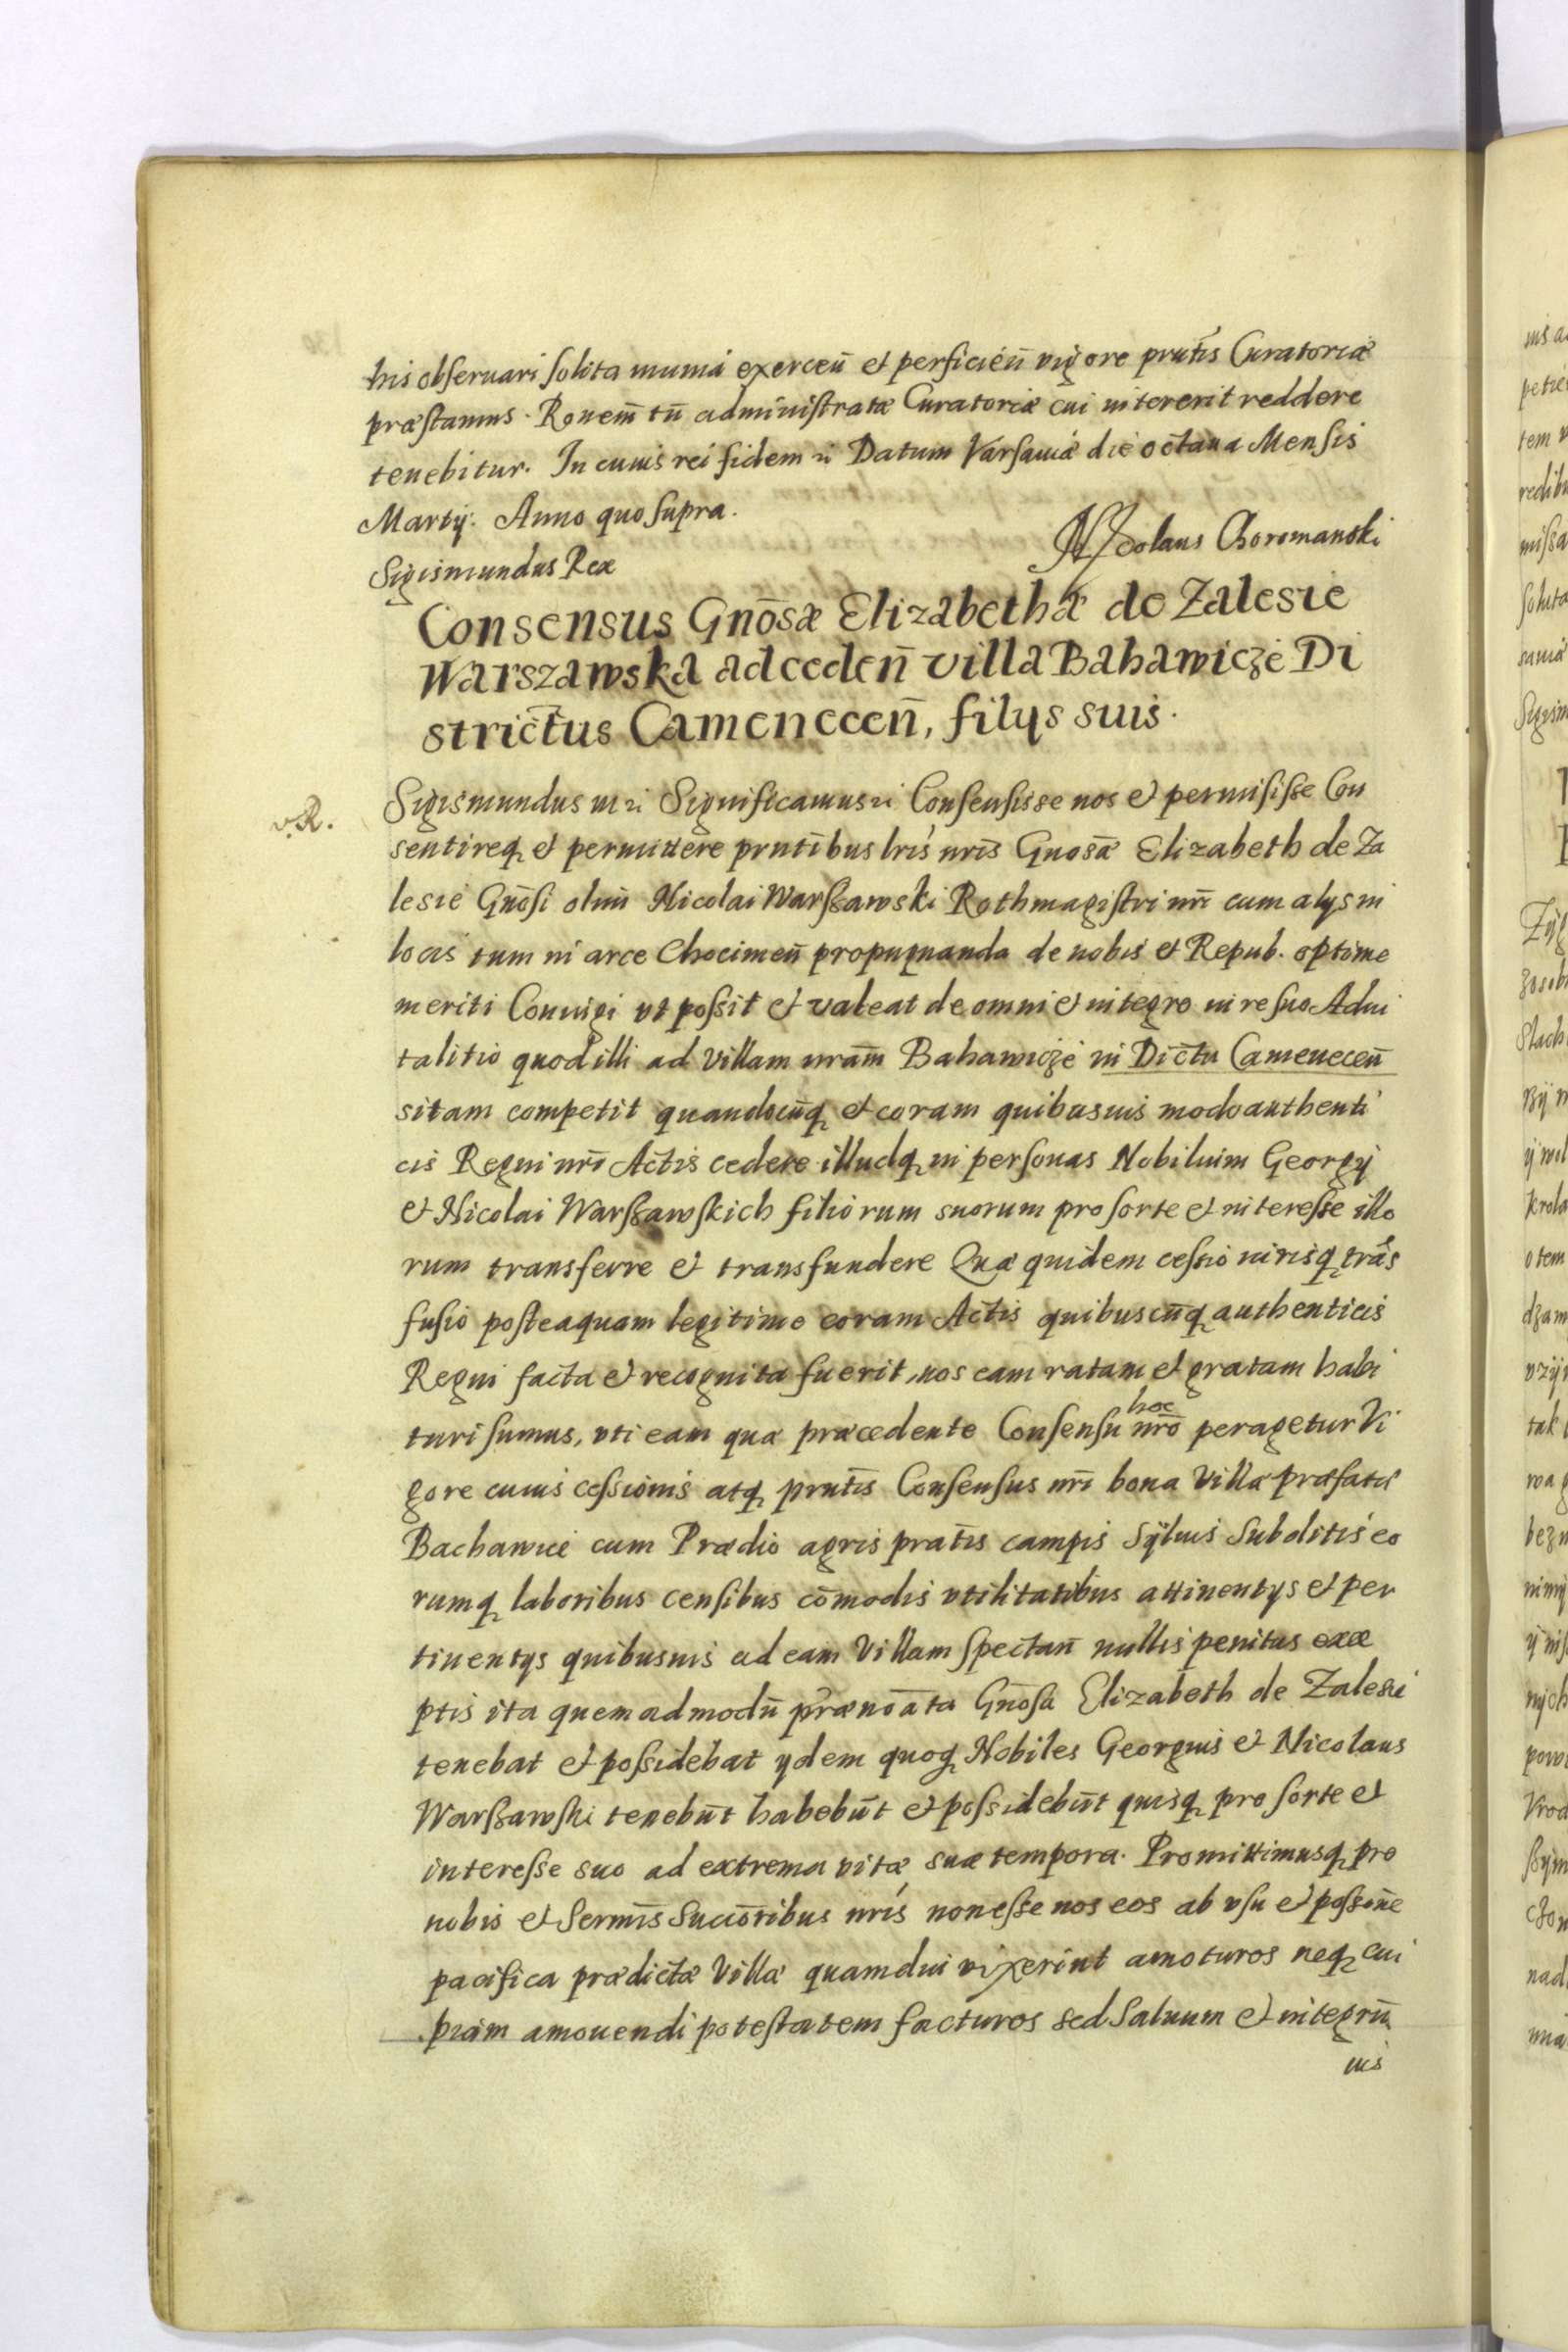 tris obseruari solita munia exerceñ et perficieñ vigore prñtis Curatoriæ
præstamus. Roneḿ tñ administratæ Curatoriæ cui intererit reddere
tenebitur. In cuius rei fidem ꝛ Datum Varsauiæ die octaua Mensis
Martij. Anno quo supra.
Sigismundus Rex
Nicolaus Choromanski
Consensus Gnõsæ Elizabethæ de Zalesie
Warszawska ad cedeñ villa Bahawicze Di
strictus Camenecen̄, filijs suis.
v.R.
Sigismundus III ꝛ Significamus ꝛ Consensisse nos et permisisse Con
sentireq, et permittere prntibus lris nris Gnosæ Elizabeth de Za
lesie Gnosi olim Nicolai Warszawski Rothmagistri nri cum alijs in
locis tum in arce Chocimen̄ propugnanda de nobis et Repub. optime
meriti Coniugi vt possit et valeat de omni et integro iure suo Adui
talitio quod illi ad Villam nram̄ Bahawicze in Dictu Camenecen̄
sitam competit quandocūq, et coram quibusuis modo authenti
cis Regni nri Actis cedere illudq, in personas Nobilium Georgij
et Nicolai Warszawskich filiorum suorum pro sorte et interesse illo
rum transferre et transfundere Quæ quidem cessio iurisq, trās
fusio posteaquam legitime coram Actis quibuscūq, authenticis
Regni facta et recognita fuerit, nos eam ratam et gratam habi
turi sumus, vti eam quæ præcedente Consensu hoc nrō peragetur Vi
gore cuius cessionis atq, prntis Consensus nri bona Villæ præfatæ
Bachawice cum Prædio agris pratis campis Syluis Subditis eo
rumq, laboribus censibus cōmodis vtilitatibus attinentijs et per
tinentijs quibusuis ad eam Villam spectan̄ nullis penitus exce
ptis ita quemadmodū prænoāta Gnōsa Elizabeth de Zalesie
tenebat et possidebat ijdem quoq, Nobiles Georgius et Nicolaus
Warszawski tenebūt habebūt et possidebūt quisq, pro sorte et
interesse suo ad extrema vitæ suæ tempora. Promittimusq, pro
nobis et Sermīs Succōribus nris non esse nos eos ab vsu et possōne
pacifica prædictæ Villæ quamdiu vixerint amoturos neq, cui
piam amouendi potestatem facturos sed Saluum et integrū
ius